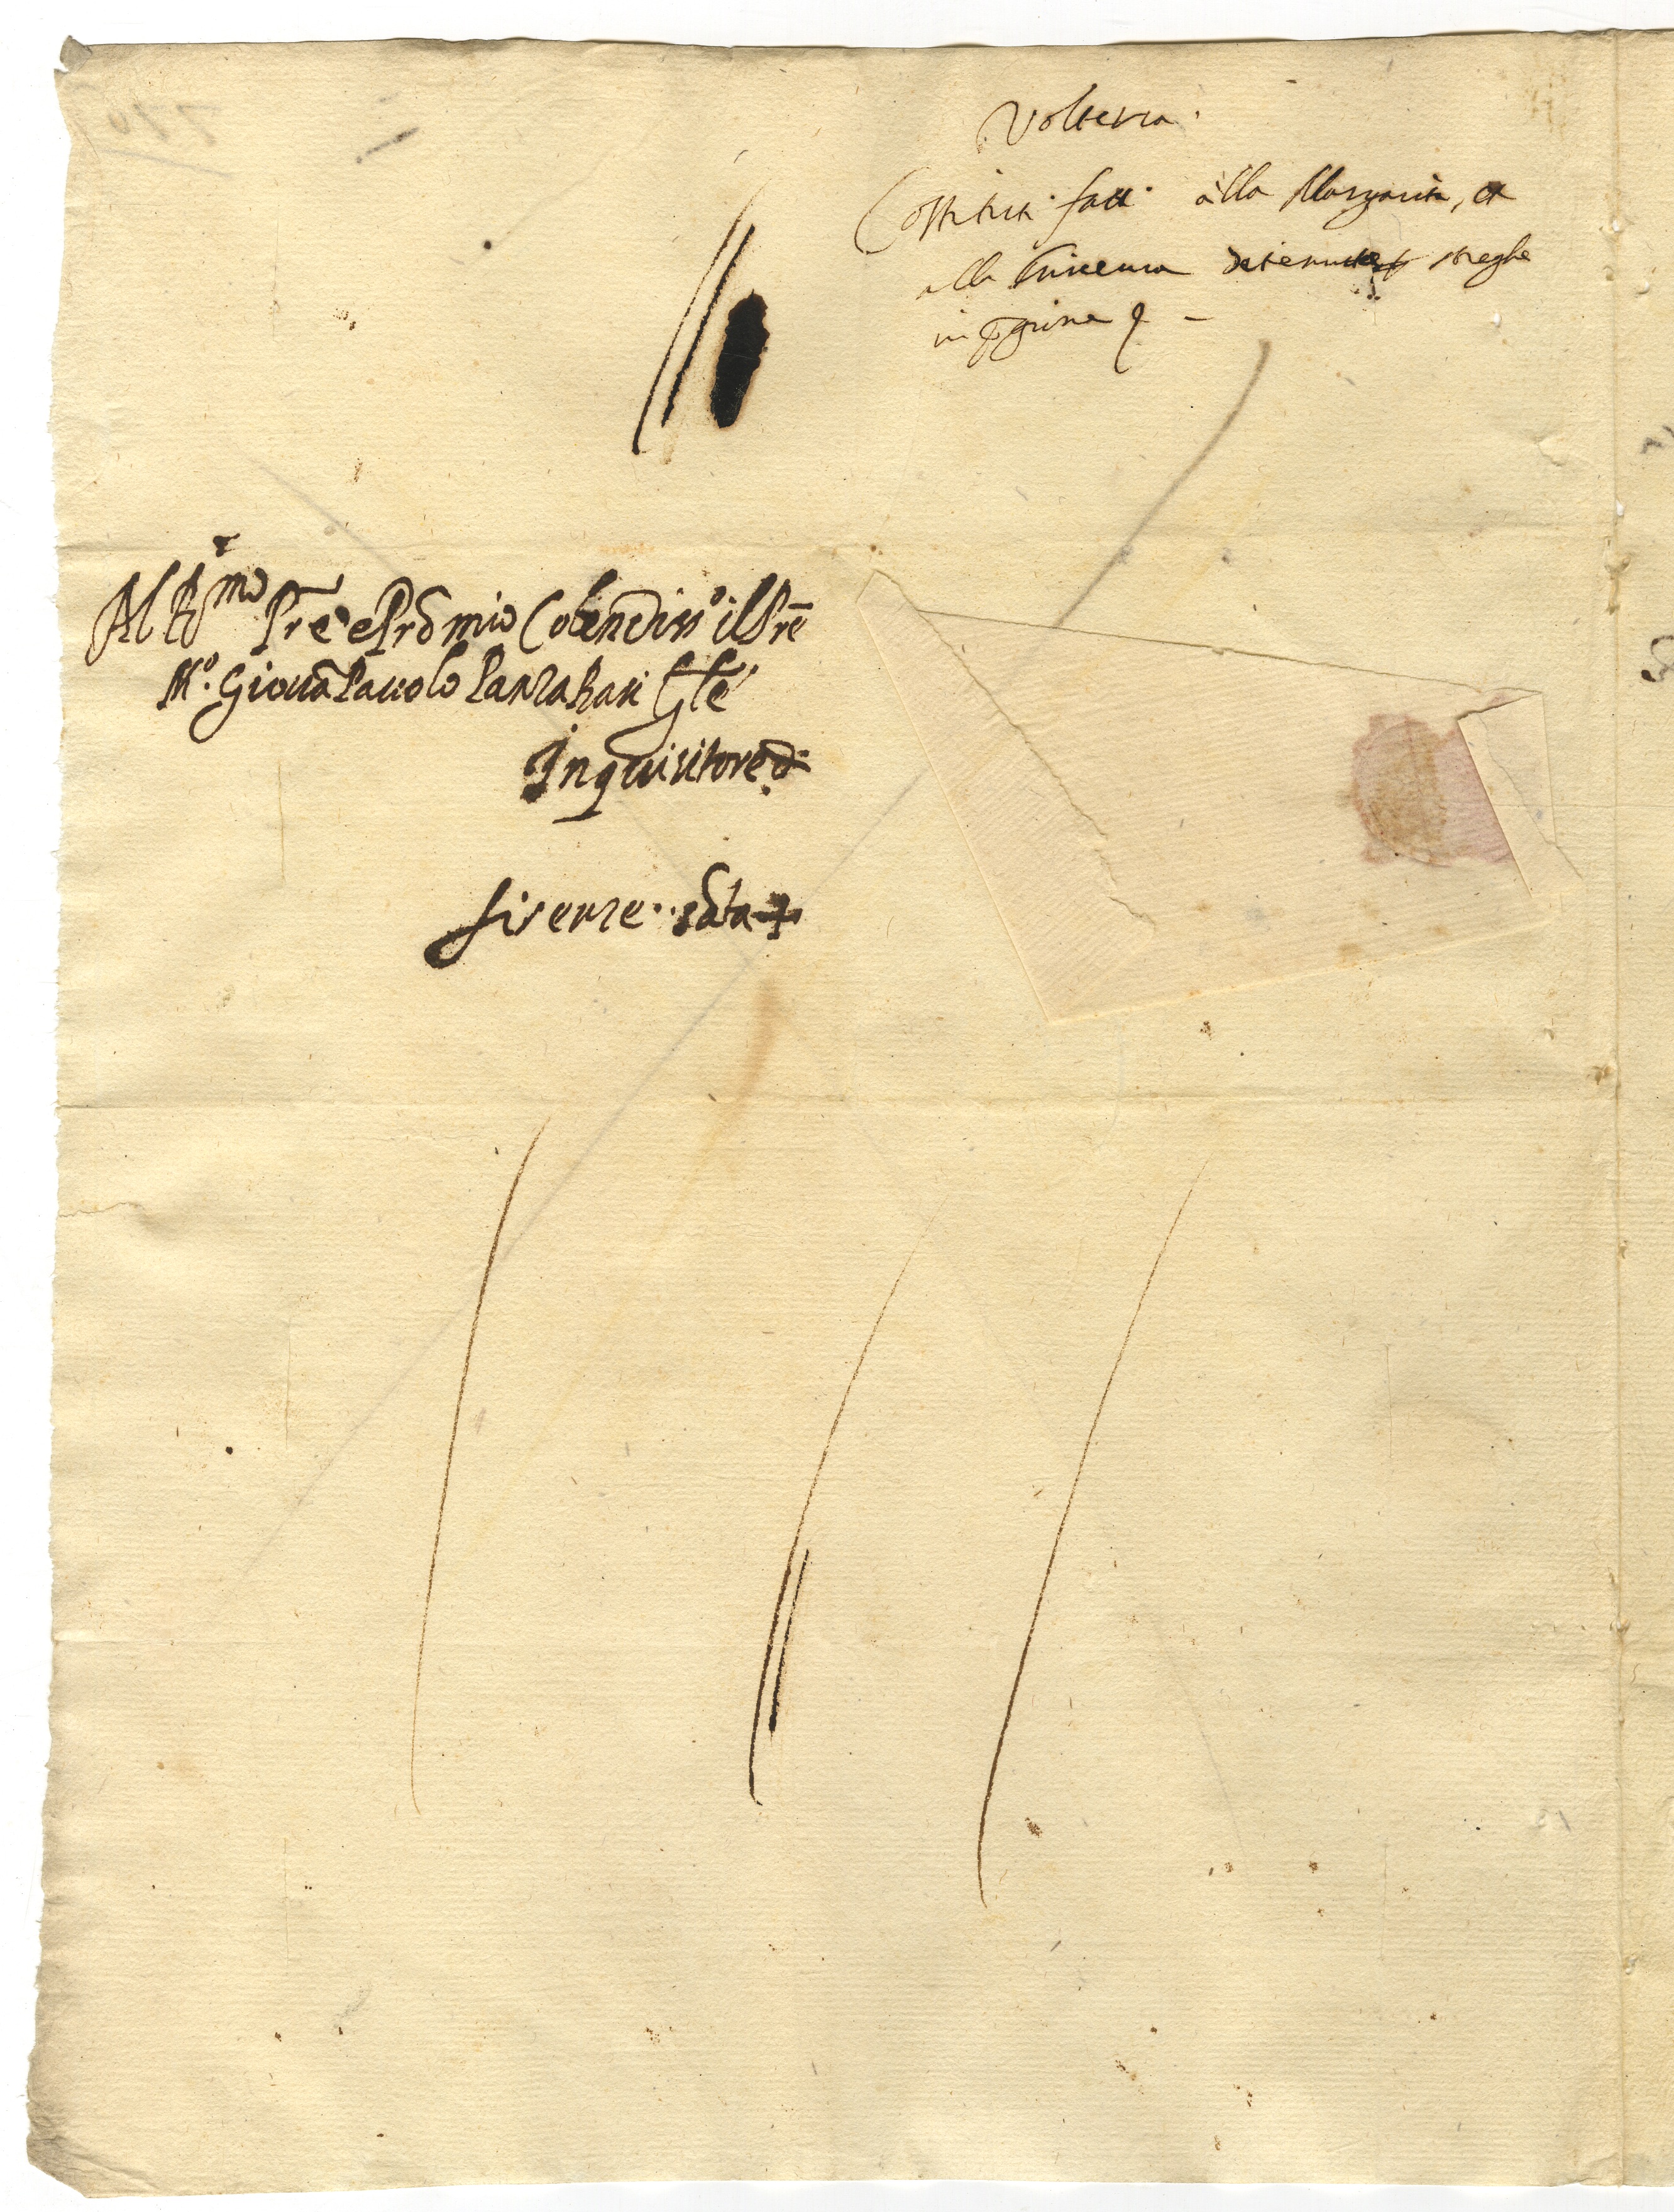 Volterra.
Costituti fatti alla Margarita, et
alla Vincenza detenute streghe
in
Al R.mo Pre e Prõ mio Colendiss.o il Pre
M.o Giouã Pauolo Panzarasi Gle
Inquisitore di
firenze. sãta +